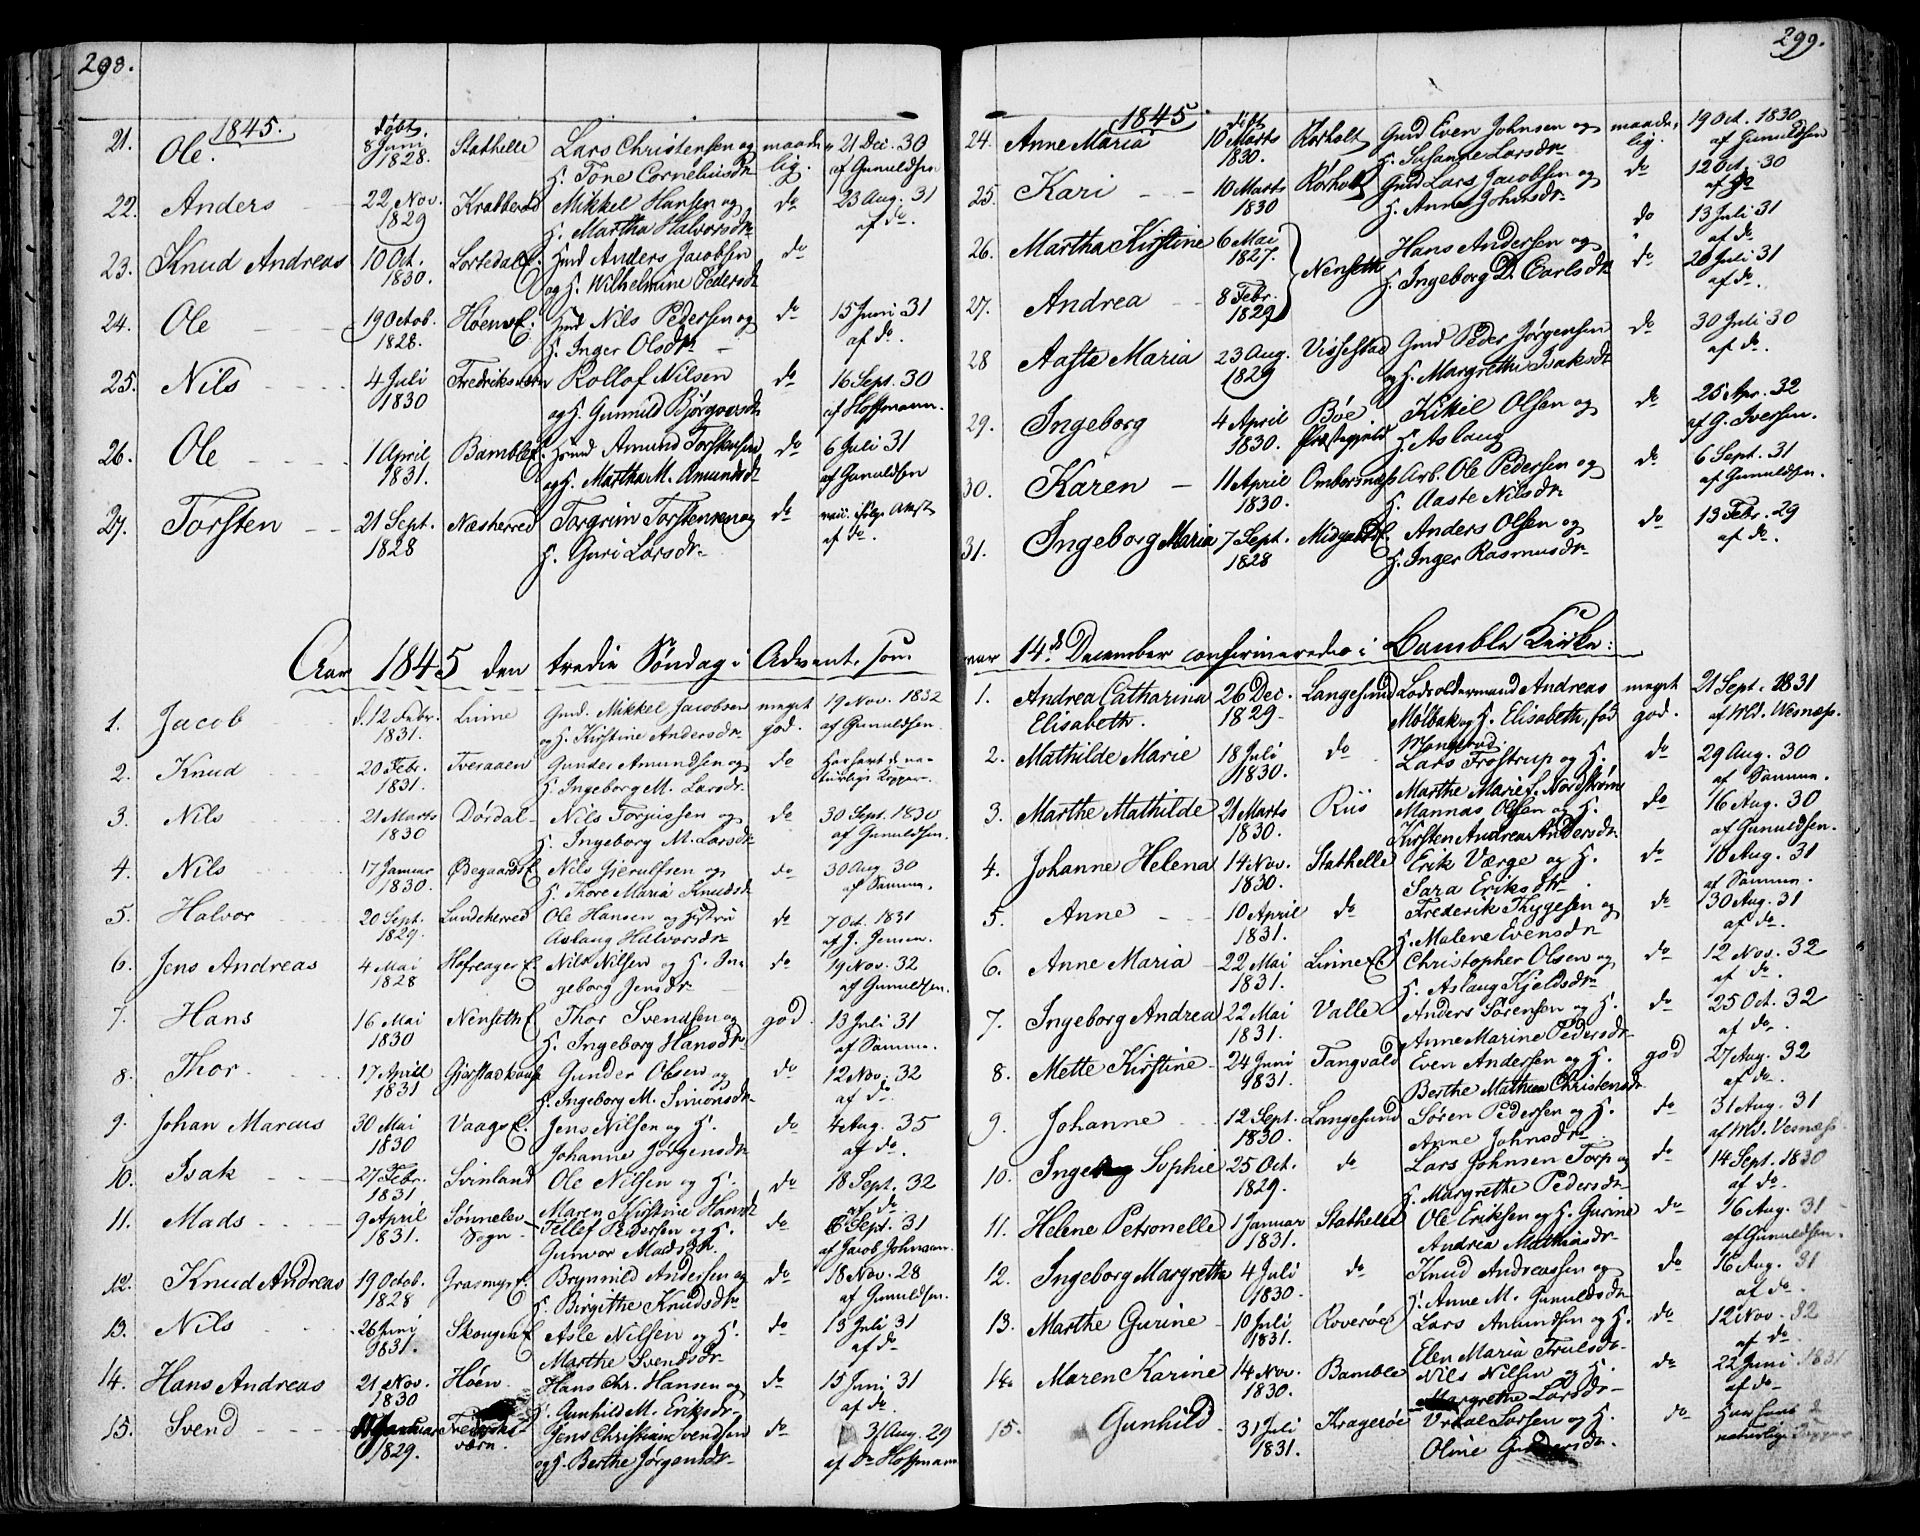 298.
1845.
21. Ole. døbt. 8 Juni 1828. Stathelle Lars Christensen og H. Tone Corneliusdr maadelig. 21 Dec. 30 af Gunuldsen
22. Anders 22 Nov. 1829 Krabberød Mikkel Hansen og H. Martha Halvorsdr do 23 Aug. 31 af do.
23. Knud Andreas 10 Oct. 1830. Anders Jacobsen og H. Wilhelmine Pedersdr do
24. Ole 19 Octob. 1828. Høens E. Nils Pedersen og H. Inger Olsdr do 15 Juni 31 af do.
25. Nils 4 Juli 1830 Fredriksværn Rollof Nilsen og H. Gunnild do 16 Sept. 30 af Hoffmann.
26. Ole 1 April 1831. Bamble E. Amund Torstensen og H. Martha M. Amundsdr do 6 Juli 31 af Gunuldsen
27. Torsten 21 Sept. 1828 Næsherred Torgrim Torstensen og H. Guri Larsdr do af do.
Aar 1845 den tredie Søndag i Advent, som
1. Jacob d. 12 Febr. 1831. Linne Gmd. Mikkel Jacobsen og H. Kirstine Andersdr meget god. 19 Nov. 1832 af Gunuldsen
2. Knud 20 Febr. 1831. Tveraaen Gunder Amundsen og H. Ingeborg M. Larsdr do Har havt de naturlige Kopper.
3. Nils 21 Marts 1830 Dørdal Nils Torjussen og H. Ingeborg M. Larsdr do 30 Sept. 1830 af Gunuldsen.
4. Nils 17 Januar 1830. Ødegaards E. Nils Gjerulfsen og H. Thore Maria Knudsdr do 30 Aug. 30 af Samme.
5. Halvor 20 Sept. 1829. Lundeherred Ole Hansen og Hstru Aslaug Halvorsdr do 7 Oct. 1831 af J. Jensen.
6. Jens Andreas 4 Mai 1828 Hafreager E. Nils Nilsen og H. Ingeborg Jensdr do 19 Nov. 32 af Gunuldsen.
7. Hans 16 Mai 1830 Nenseth E. Thor Svendsen og H. Ingeborg Hansdr god. 13 Juli 31 af Samme.
8. Thor 17 April 1831 Gunder Olsen og H. Ingeborg M. Simonsdr do 12 Nov. 32 af do
9. Johan Marcus 30 Mai 1830 Vaags E. Jens Nilsen og H. Johanne Jørgensdr do 4 Aug. 35 af do.
10. Isak 27 Febr. 1831 Svinland Ole Nilsen og H. Maren Kirstine Hansdr do 18 Sept. 32 af do
11. Mads 9 April 1831. Sønnelev Sogn Tellef Pedersen og H. Gunvor Madsdr do 6 Sept. 31 af Jacob Johnsen.
12. Knud Andreas 19 Octob. 1828 Grasmyr E. Brynnild Andersen og H. Birgithe Knudsdr do 18 Nov. 28 af Gunuldsen.
13. Nils 26 Juni 1831. Skougen E. Asle Nilsen og H. Marthe Svendsdr do 13 Juli 31 af do
14. Hans Andreas 21 Nov. 1830 Høen Hans Chr. Hansen og H. Gunhild M. Eriksdr do 15 Juni 31 af do.
15. Svend Januar 1829. Frederiksværn. Jens Christian Svendsen og H. Berthe Jørgensdr do 31 Aug. 29 af Do Hoffmann
299.
1845
24. Anne Maria døbt 10 Marts 1830. Rørholt Gmd Even Johnsen og H. Susanne Larsdr maadelig. 19 Oct. 1830 af Gunuldsen
25. Kari 10 Marts 1830 Rørholt Gmd Lars Jacobsen og H. Anne Johnsdr do 12 Oct. 30 af do
26. Martha Kirstine 6 Mai 1827. Nenseth Hans Andersen og H. Ingeborg D. Carlsdr do 13 Juli 31 af do
27. Andrea 8 Febr. 1829 do 20 Juli 31 af do.
28 Aaste Maria 23 Aug. 1829 Vissestad Gmd Peder Jørgensen og H. Margrethe Isaksdr do 30 Juli 30 af do.
29. Ingeborg 4 April 1830. Bøe Præstegjeld Kikel Olsen og H. Aslaug do 25 Apr. 32 af G. Iversen.
30. Karen 11 April 1830. Ombersnæs Arb. Ole Pedersen og H. Aaste Nilsdr do 6 Sept. 31 af Gunuldsen.
31. Ingeborg Maria 7 Sept. 1828 Anders Olsen og H. Inger Rasmusdr do 13 Febr. 29 af do.
var 14de December confirmeredes i Bamble Kirke:
1. Andrea Catharina Elisabeth. 26 Dec. 1829 Langesund Lodsoldermand Andreas Molbak og H. Elisabeth, fød meget god. 21 Sept. 1831 af Md. Wesnæs.
2. Mathilde Marie 18 Juli 1830. do Lars Trostrup og H. Marthe Marie f. Nordstrøm do 29 Aug. 30 af Samme.
3. Marthe Mathilde 21 Marts 1830. Riis Mannas Olsen og H. Kirsten Andrea Andersdr do 16 Aug. 30 af Gunuldsen.
4. Johanne Helena 14 Nov. 1830. Stathelle Erik Værge og H. Sara Eriksdr do 10 Aug. 31 af Samme.
5. Anne 10 April 1831. do Frederik Thygesen og H. Malene Evensdr do 30 Aug. 31 af do.
6. Anne Maria 22 Mai 1831. Linne E Christopher Olsen og H. Aslaug Kjeldsdr do 12 Nov. 32 af do.
7. Ingeborg Andrea 22 Mai 1831. Valle Anders Sörensen og H. Anne Marine Pedersdr do 25 Oct. 32 af do
8. Mette Kirstine 24 Juni 1831. Tangvald Even Andersen og H. Berthe Mathea Christensdr god 27 Aug. 32 af do.
9. Johanne 12 Sept. 1830. Langesund Sören Pedersen og H. Anne Johnsdr do 31 Aug. 31 af Md. Vesnæs
10. Ingeborg Sophie 25 Oct. 1829. do Lars Johnsen Torp og H. Margrethe Pedersdr do 14 Sept. 1830 af do.
11. Helene Petronelle 1 Januar 1831. Stathelle Ole Eriksen og H. Gurine Andrea Mathiasdr do 16 Aug. 31 af Gunuldsen.
12. Ingeborg Margrethe 4 Juli 1830. do Knud Andreassen og H. Anne M. Gunuldsdr do 16 Aug. 31 af do.
13. Marthe Gurine 10 Juli 1831. Roverøe Lars Amundsen og H. Elen Maria Trulsdr do 12 Nov. 32 af do.
14. Maren Karine 14 Nov. 1830. Bamble Nils Nilsen og H. Margrethe Larsdr do 22 Juni 1831 af do
15. Gunhild 31 Juli 1831. Kragerøe Larsen og H. Oline do Har havt d naturlige Kopper